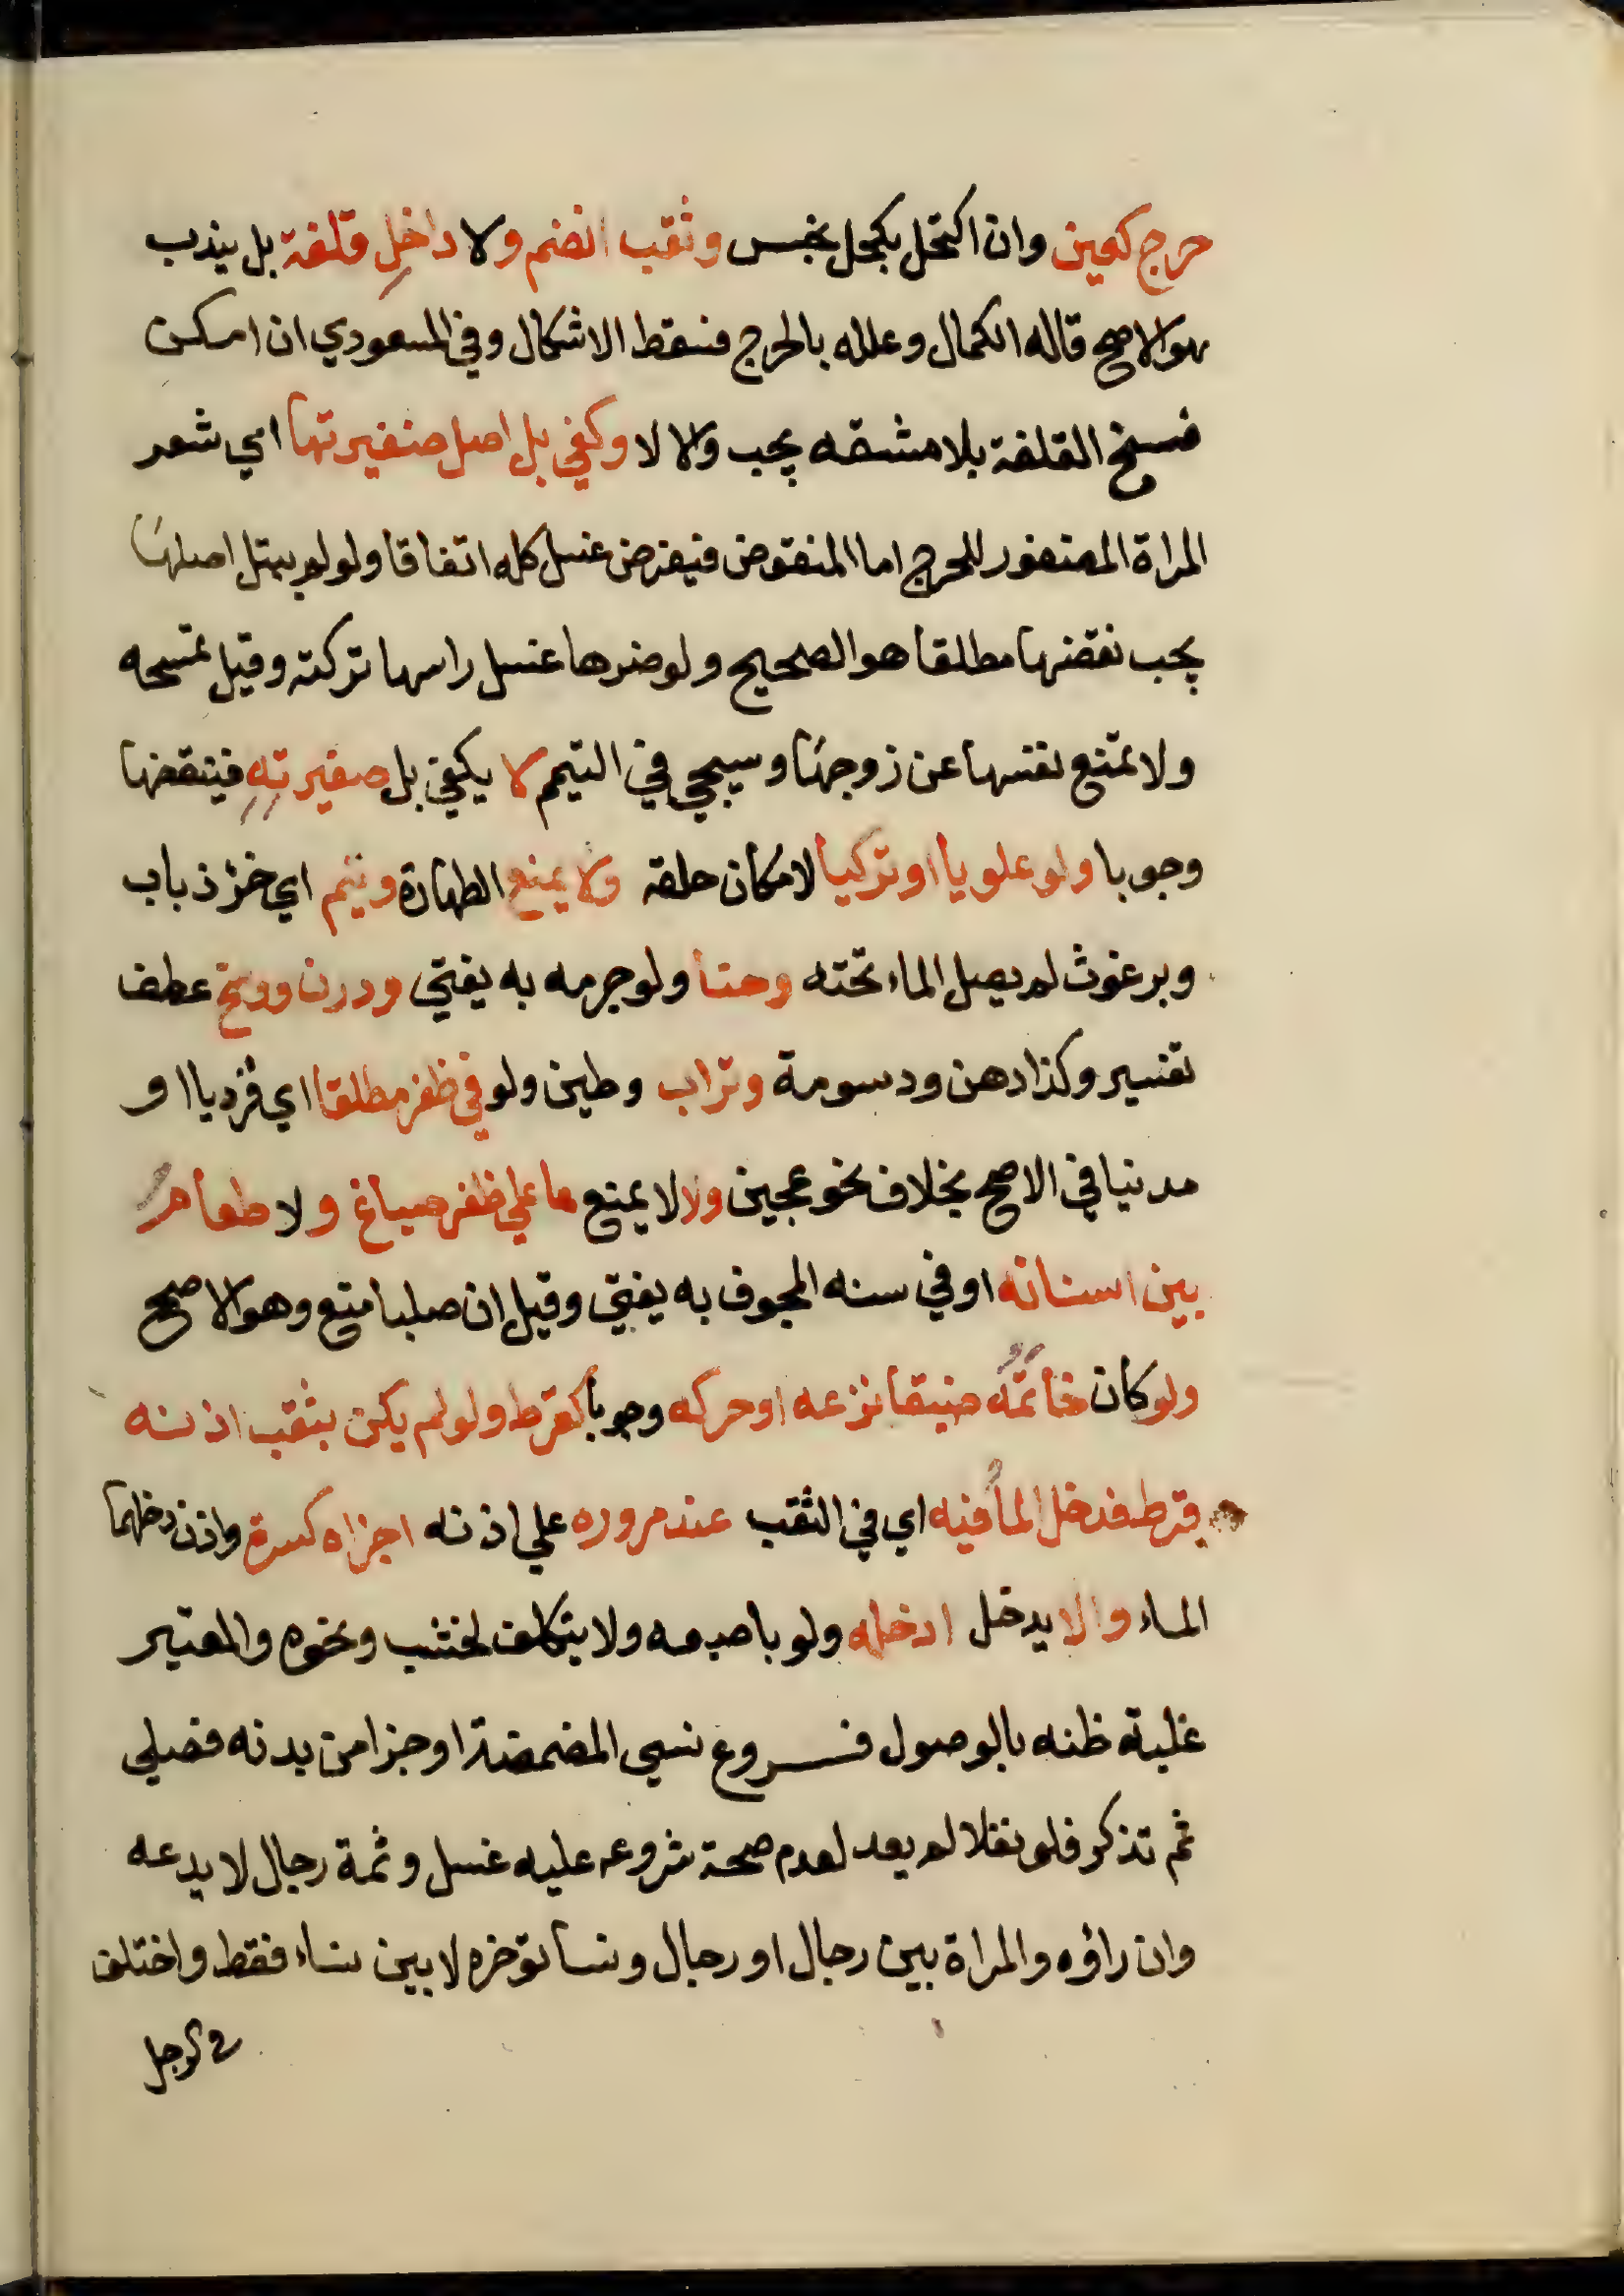 حرج كعين وان اكتحل بكحل نجس وثقب انضم ولا داخل قلفة بل يندب
هو الاصح قاله الكمال وعلله بالحرج فسقط الاشكال وفي المسعودي ان امكن
فسخ القلفة بلا مشقه يجب والا لا وكفي بل اصل ضفيرتها اي شعر
المراة المضفور للحرج اما المنقوض فيفرض غسل كله اتفاقا ولو لم يبتل اصلها
يجب نقضها مطلقا هو الصحيح ولو ضرها غسل راسها تركته وقيل تمسحه
ولا تمتنع نفسها عن زوجها وسيجي في التيمم لا يكفي بل ضفيرته فينقضها
وجوبا ولو علويا او تركيا لامكان حلقه ولا يمنع الطهارة ونيم اي خرؤ ذباب
وبرغوث لم يصل الماء تحته وحنا ولو جرمه به يفتي ودرن ووسخ عطف
تفسير وكذا دهن ودسومة وتراب وطين ولو في ظفر مطلقا اي قرديا او
مدنيا في الاصح بخلاف نحو عجين ولا لا يمنع ما علي ظفر صباغ ولا طعام
بين اسنانه او في سنه المجوف به يفتي وقيل ان صلبا منع وهو الاصح
ولو كان خاتمه ضيقا نزعه او حركه وجوبا كقرط ولو لم يكن بثقب اذنه
قرط فدخل الما فيه اي في الثقب عند مروره علي اذنه اجزاه كسرة واذن دخلهما
الماء والا يدخل ادخله ولو باصبعه ولا يتكلف لخشب ونحوه والمعتبر
غلبة ظنه بالوصول فروع نسي المضمضة او جزا من بدنه فصلي
ثم تذكر فلو نفلا لم يعد لعدم صحة شروعه عليه غسل وثمة رجال لا يدعه
وان راؤه والمراة بين رجال او رجال ونسا تؤخره لا بين نساء فقط واختلف
في الرجل